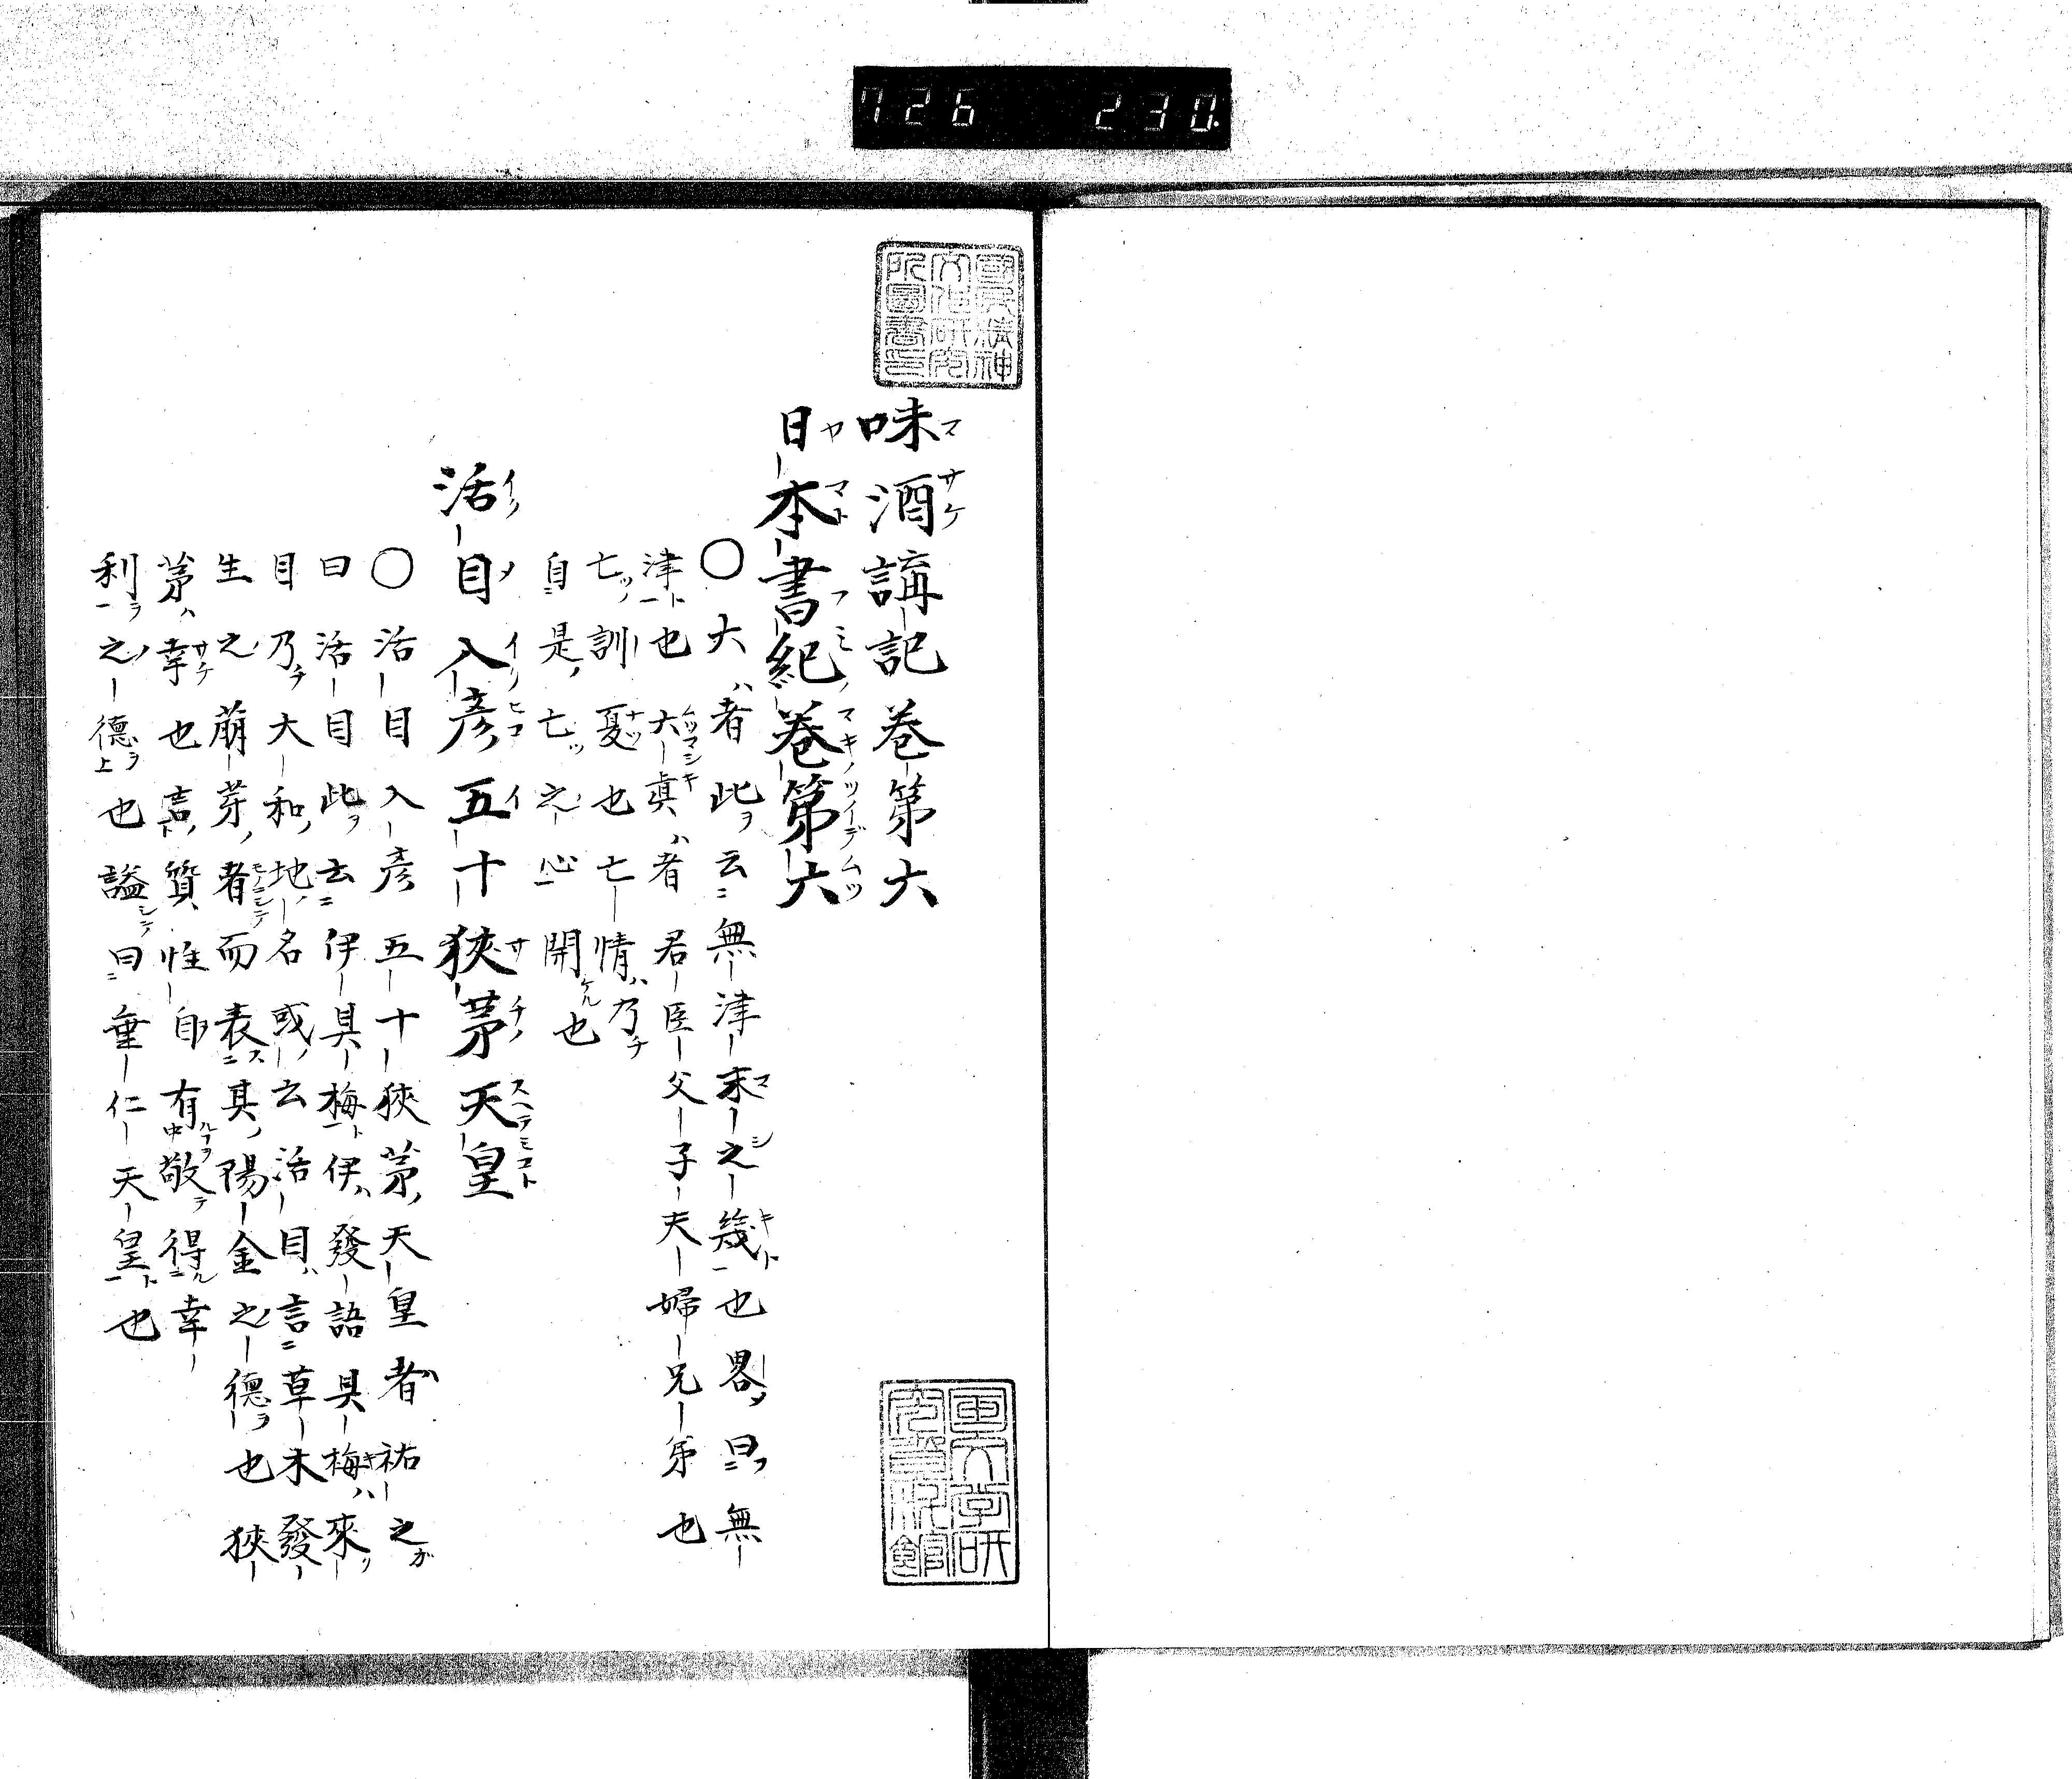 726 230
國民精神
文化研究
所圖書印
味酒講記卷第六
日本書紀卷第六
〇六者此云無津末之幾也畧曰無
津也六眞者君臣父子夫婦兄弟也
七訓夏也七情乃
自是七之心開也
活目入彦五十狹茅天皇
〇活目入彦五十狹茅天皇者祐之
曰活目此云伊具梅伊發語具梅來
目乃大和地名或云活目言草木發
生之萠芽者而表其陽金之德也狹
茅幸也言質性自有敬得幸
利之德也謚曰垂仁天皇也